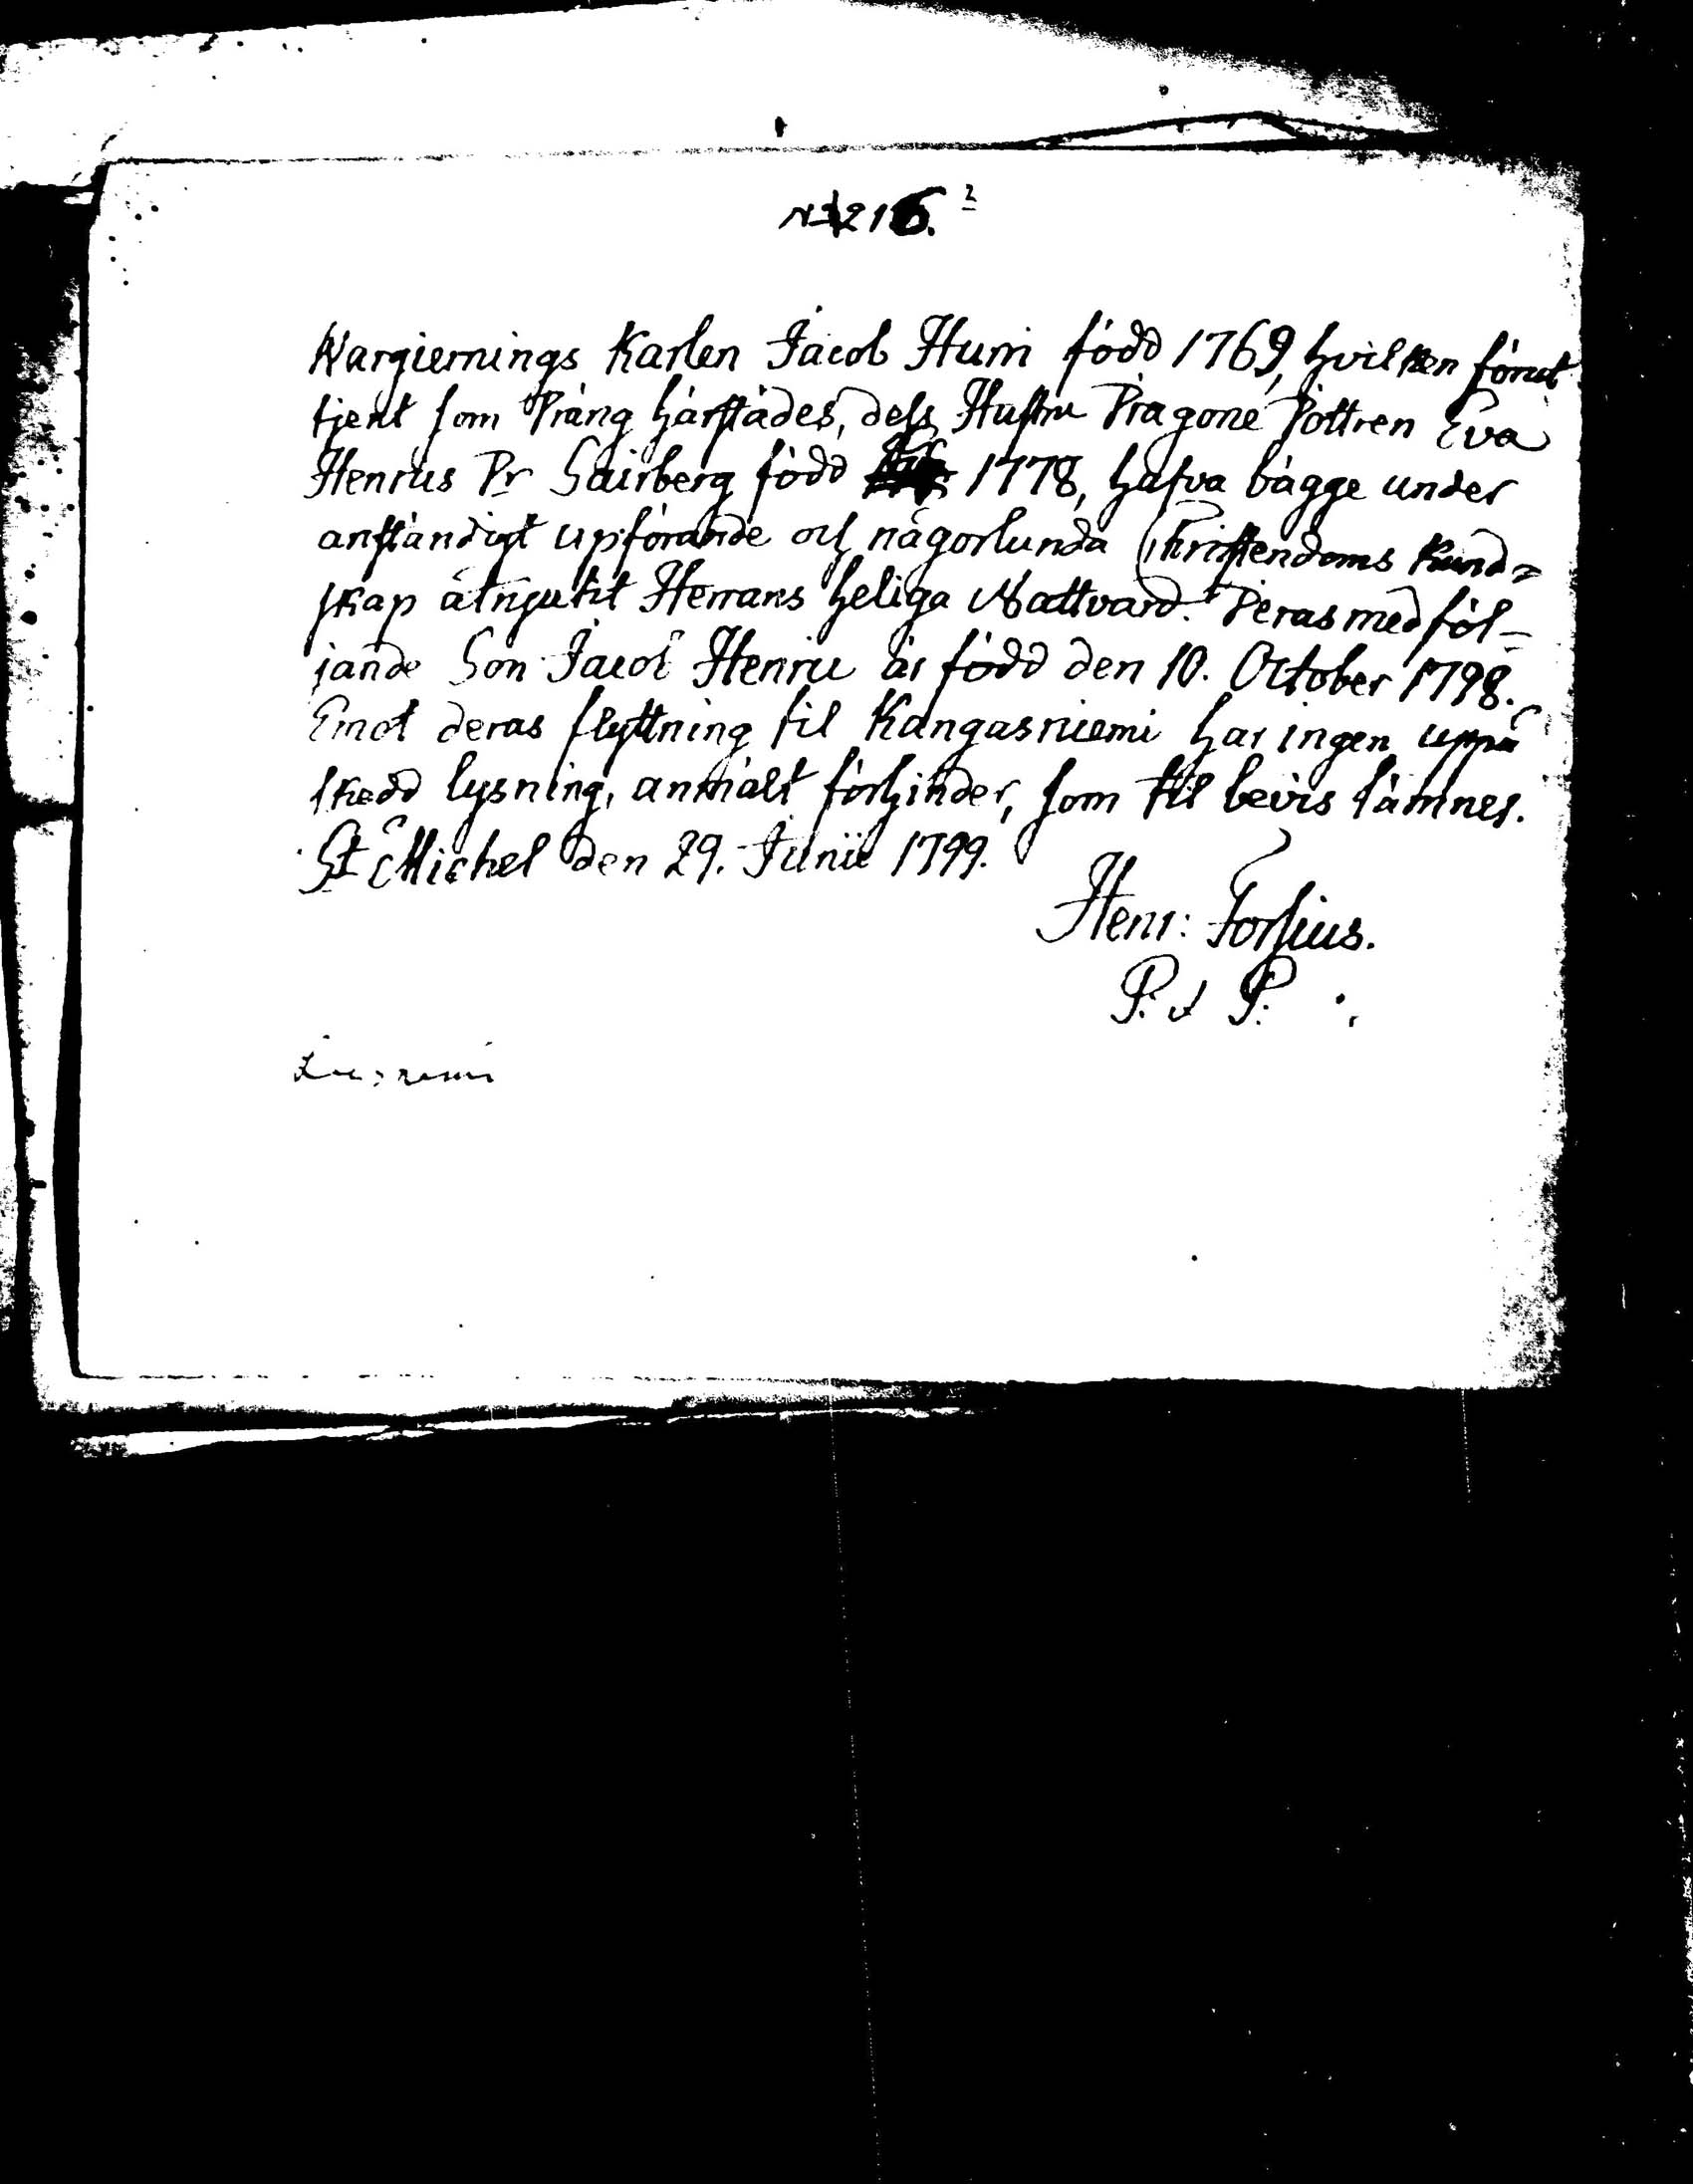 N 216. 2
Wargiernings Karlen Jacob Hurri född 1769, hvilken förut
tjent som Dräng härstädes, dess Hustru Dragone Dottren Eva
Henrics Dr Sairberg född 1778, hafva bägge under
anständigt upförande och någorlunda Christendoms Kund-
skap åtnjutit Herrans heliga Nattvard. Deras medföl-
jande Son Jacob Henric är född den 10. October 1798.
Emot deras flyttning til Kangasniemi har ingen uppå
skedd lysning, anmält förhinder, som til bevis lämnes.
St Michel den 29. Junii 1799.
Henr: Forsius.
P. & P.